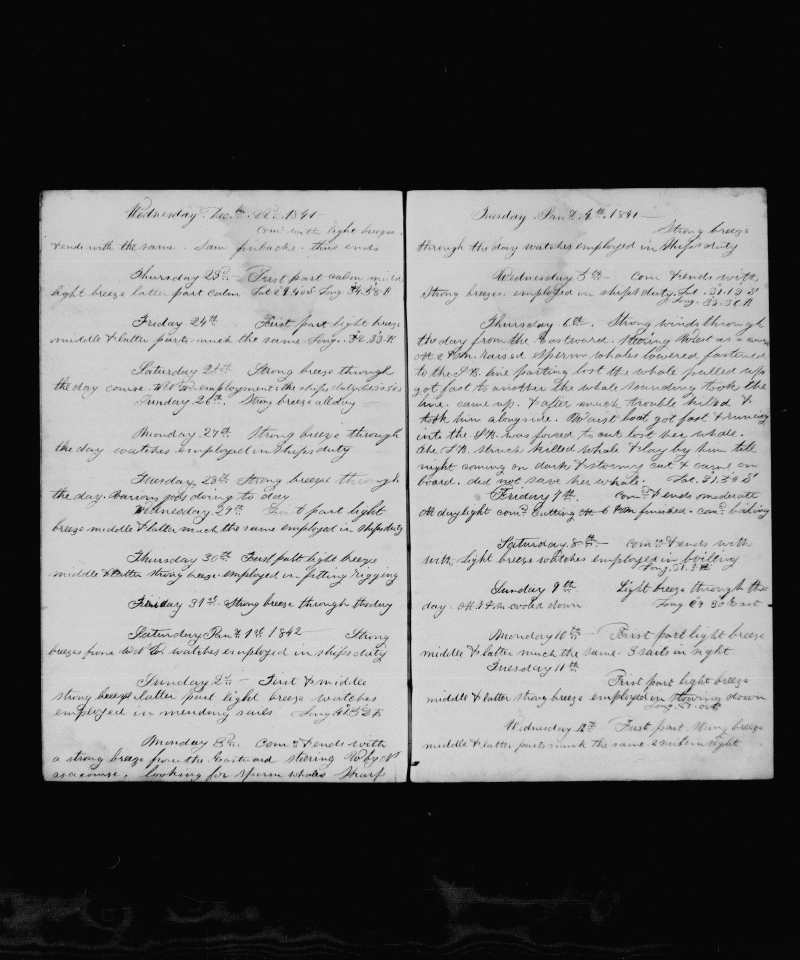 Wednesday Dec th 22 1841
Com with light breeze
& ends with the same. Saw finbacks. thus ends
Thursday 23 First part calm mid
light breeze latter part calm Lat Long
Friday 24th First part light breeze
middle & latter parts much the same Long.
Saturday 25th Strong breeze through
the day course employment ships duty
Sunday 26th. Strong breeze all day
Monday 27th Strong breeze through
the day watches employed in ships duty
Tuesday 28th Strong breeze through
the day. Various jobs doing to day
Wednesday 29th First part light
breeze middle & latter much the same employed in ships duty
Thursday 30th First part light breeze
middle & latter strong breeze employed in fitting rigging
Friday 31st Strong breeze through the day
Saturday Jan 1st 1842 Strong
breezes from watches employed in ships duty
Sunday 2 First & middle
strong breeze latter part light breeze watches
employed in mending sails Long
Monday 3 Com & ends with
a strong breeze from the Eastward steering W by N
as a course. looking for sperm whales sharp
Tuesday Jan 4th. 1841
Strong breeze
through the day watches employed in Ships duty
Wednesday 5th Com & ends with
Strong breezes. employed in ships duty. Lat. 31.13 S
Long.
Thursday 6th. Strong winds through
the day from the Eastward. Steering West as a course
At 2 P.M. raised Sperm whales lowered fastened
to the line parting lost the whale pulled up
got fast to another the whale sounding took the
line. came up. & after much trouble killed &
took him alongside. Waist boat got fast & running
into the was forced to cut lost her whale.
the struck killed whale & lay by him till
night coming on dark & stormy cut & came on
board. did not save her whale. Lat. 31.50 S
Friday 7th. Com & ends moderate
At daylight com cutting At 6 P.M. finished. com boiling
Saturday 8th Com & ends with
with light breeze watches employed in boiling
Long.
Sunday 9th Light breeze through the
day. At cooled down Long East
Monday 10th First part light breeze
middle & latter much the same 3 sails in sight
Tuesday 11th
First part light breeze
middle & latter strong breeze employed in stowing down
Long.
Wednesday 12th First part Strong breeze
middle & latter parts much the same 2 sails in sight